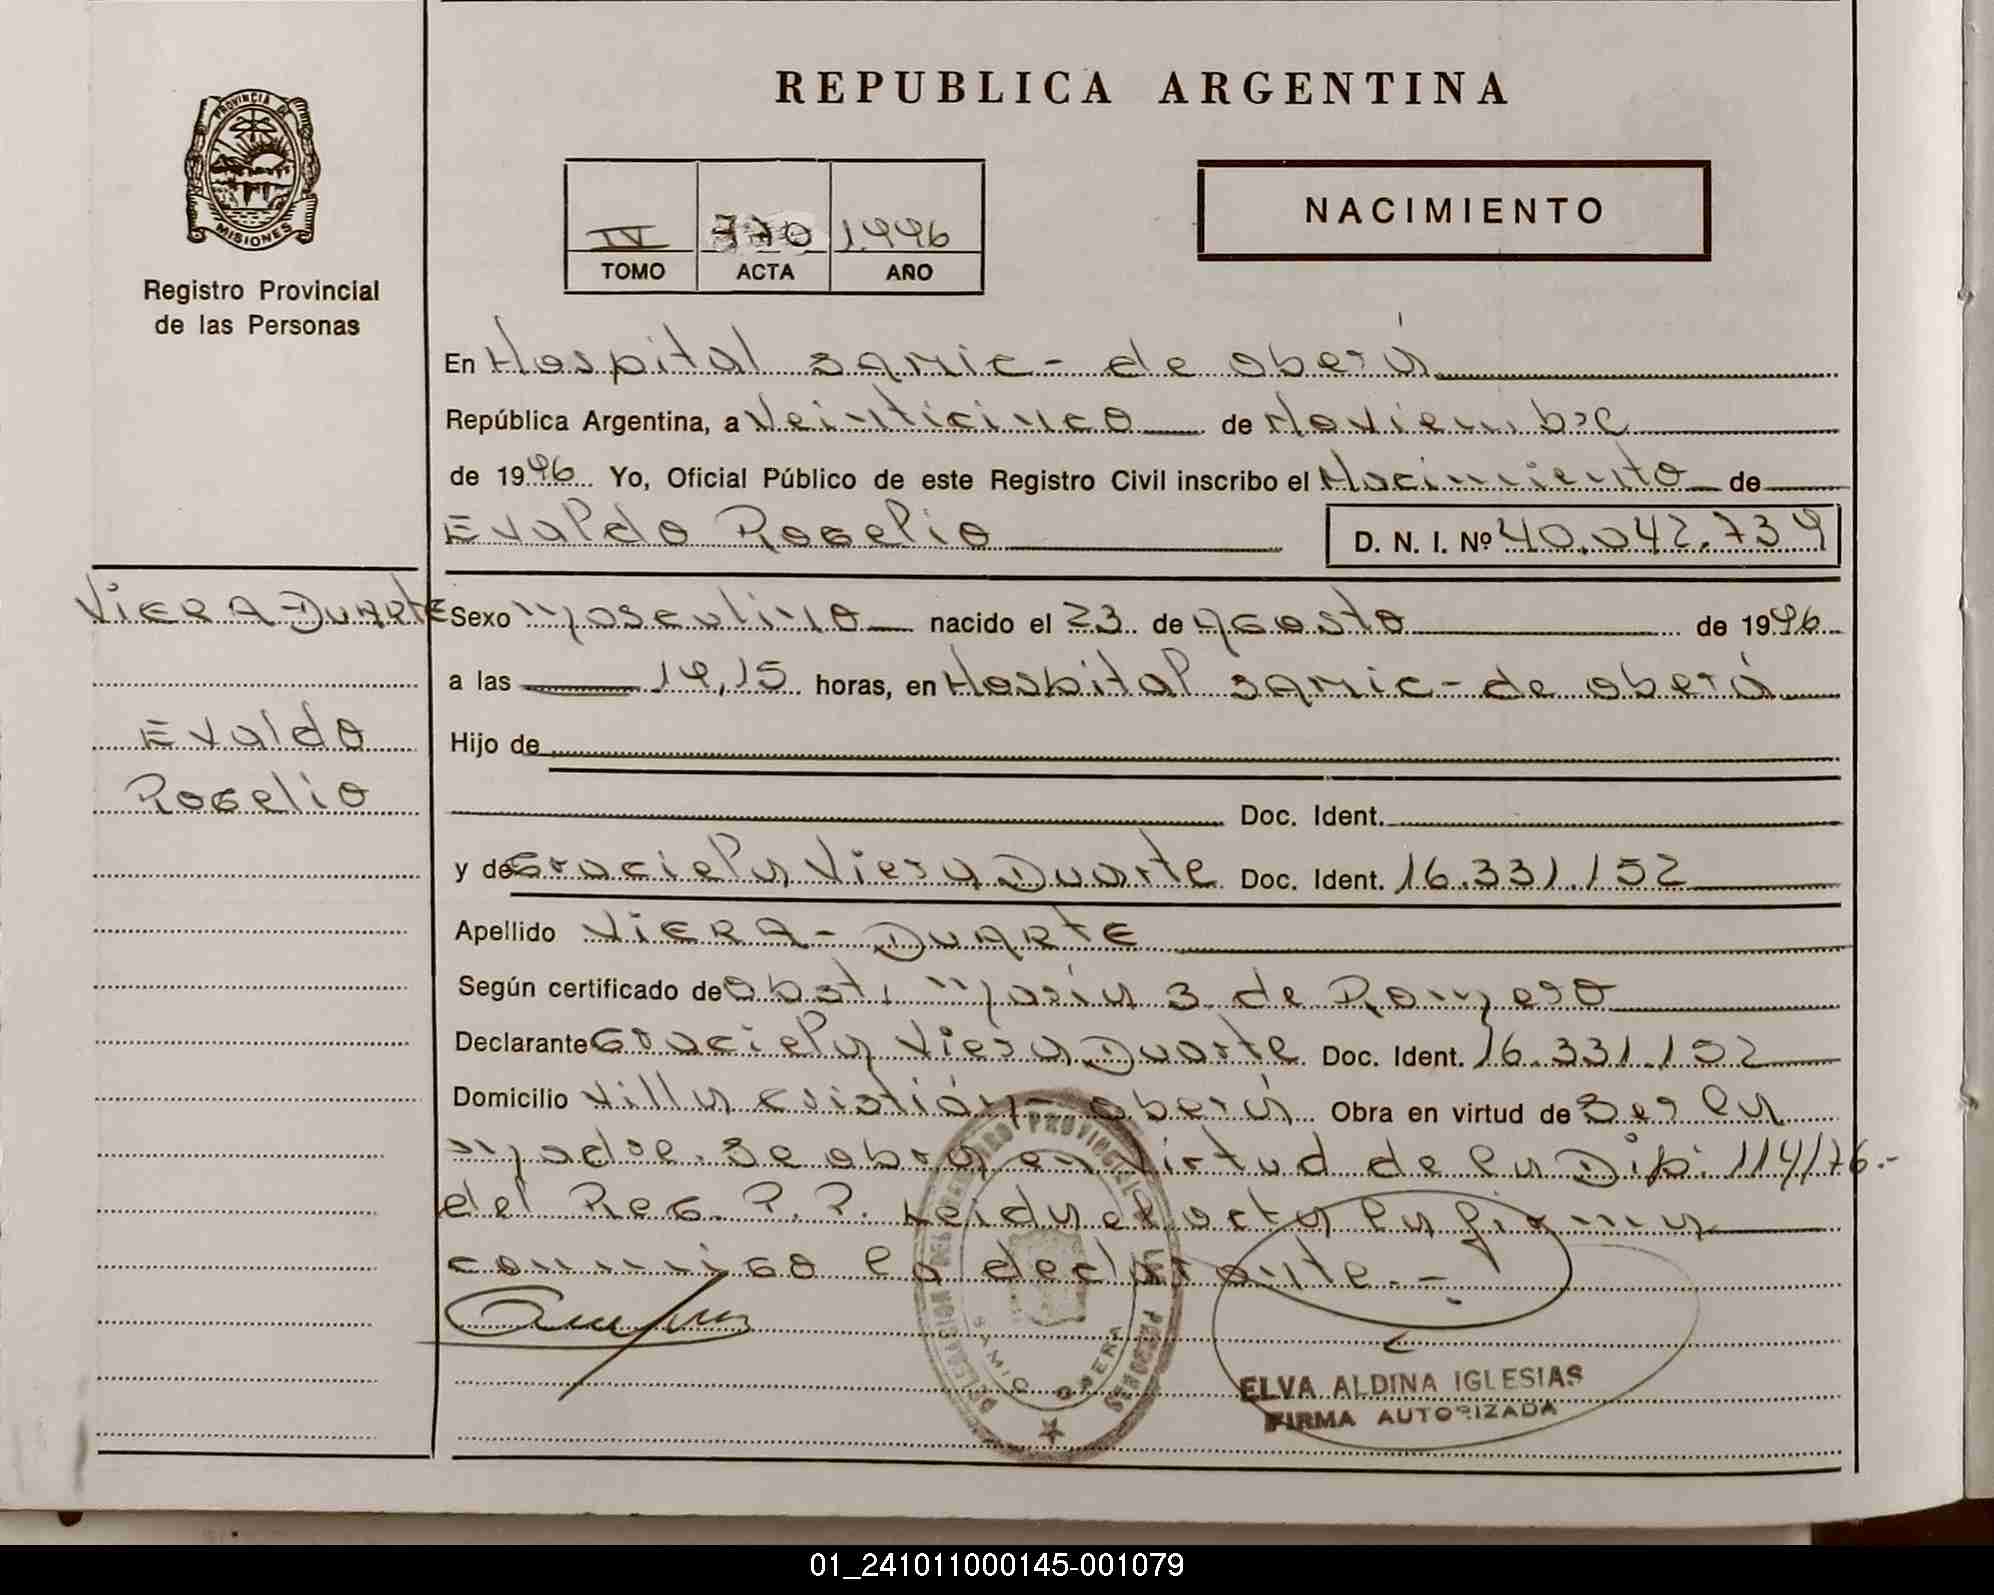 REPUBLICA ARGENTINA
PROVINCIA DE
MISIONES
Registro Provincial
de las Personas
IV 770 1996
TOMO ACTA AÑO
NACIMIENTO
En Hospital SAMIC - de oberá
República Argentina, a Veinticinco de Noviembre
de 1996 Yo, Oficial Público de este Registro Civil inscribo el Nacimiento de
Evaldo Rogelio D. N. I. Nº 40.042.739
VIERA-DUARTE
Evaldo
Rogelio
Sexo masculino nacido el 23 de agosto de 1996
a las 19,15 horas, en Hospital SAMIC - de oberá
Hijo de
Doc. Ident.
y de Graciela Viera Duarte Doc. Ident. 16.331.152
Apellido VIERA - DUARTE
Según certificado de obst. maría S de Romero
Declarante Graciela Viera Duarte Doc. Ident. 16.331.152
Domicilio Villa cristián - oberá Obra en virtud de ser la
madre. se obra en virtud de la Disp. 114/76.-
del Reg. P. P. Leida el acta la firma
conmigo la declarante.-
DELEGACION DEL REGISTRO PROVINCIAL DE LAS PERSONAS
SAMIC OBERA
ELVA ALDINA IGLESIAS
FIRMA AUTORIZADA
01_241011000145-001079